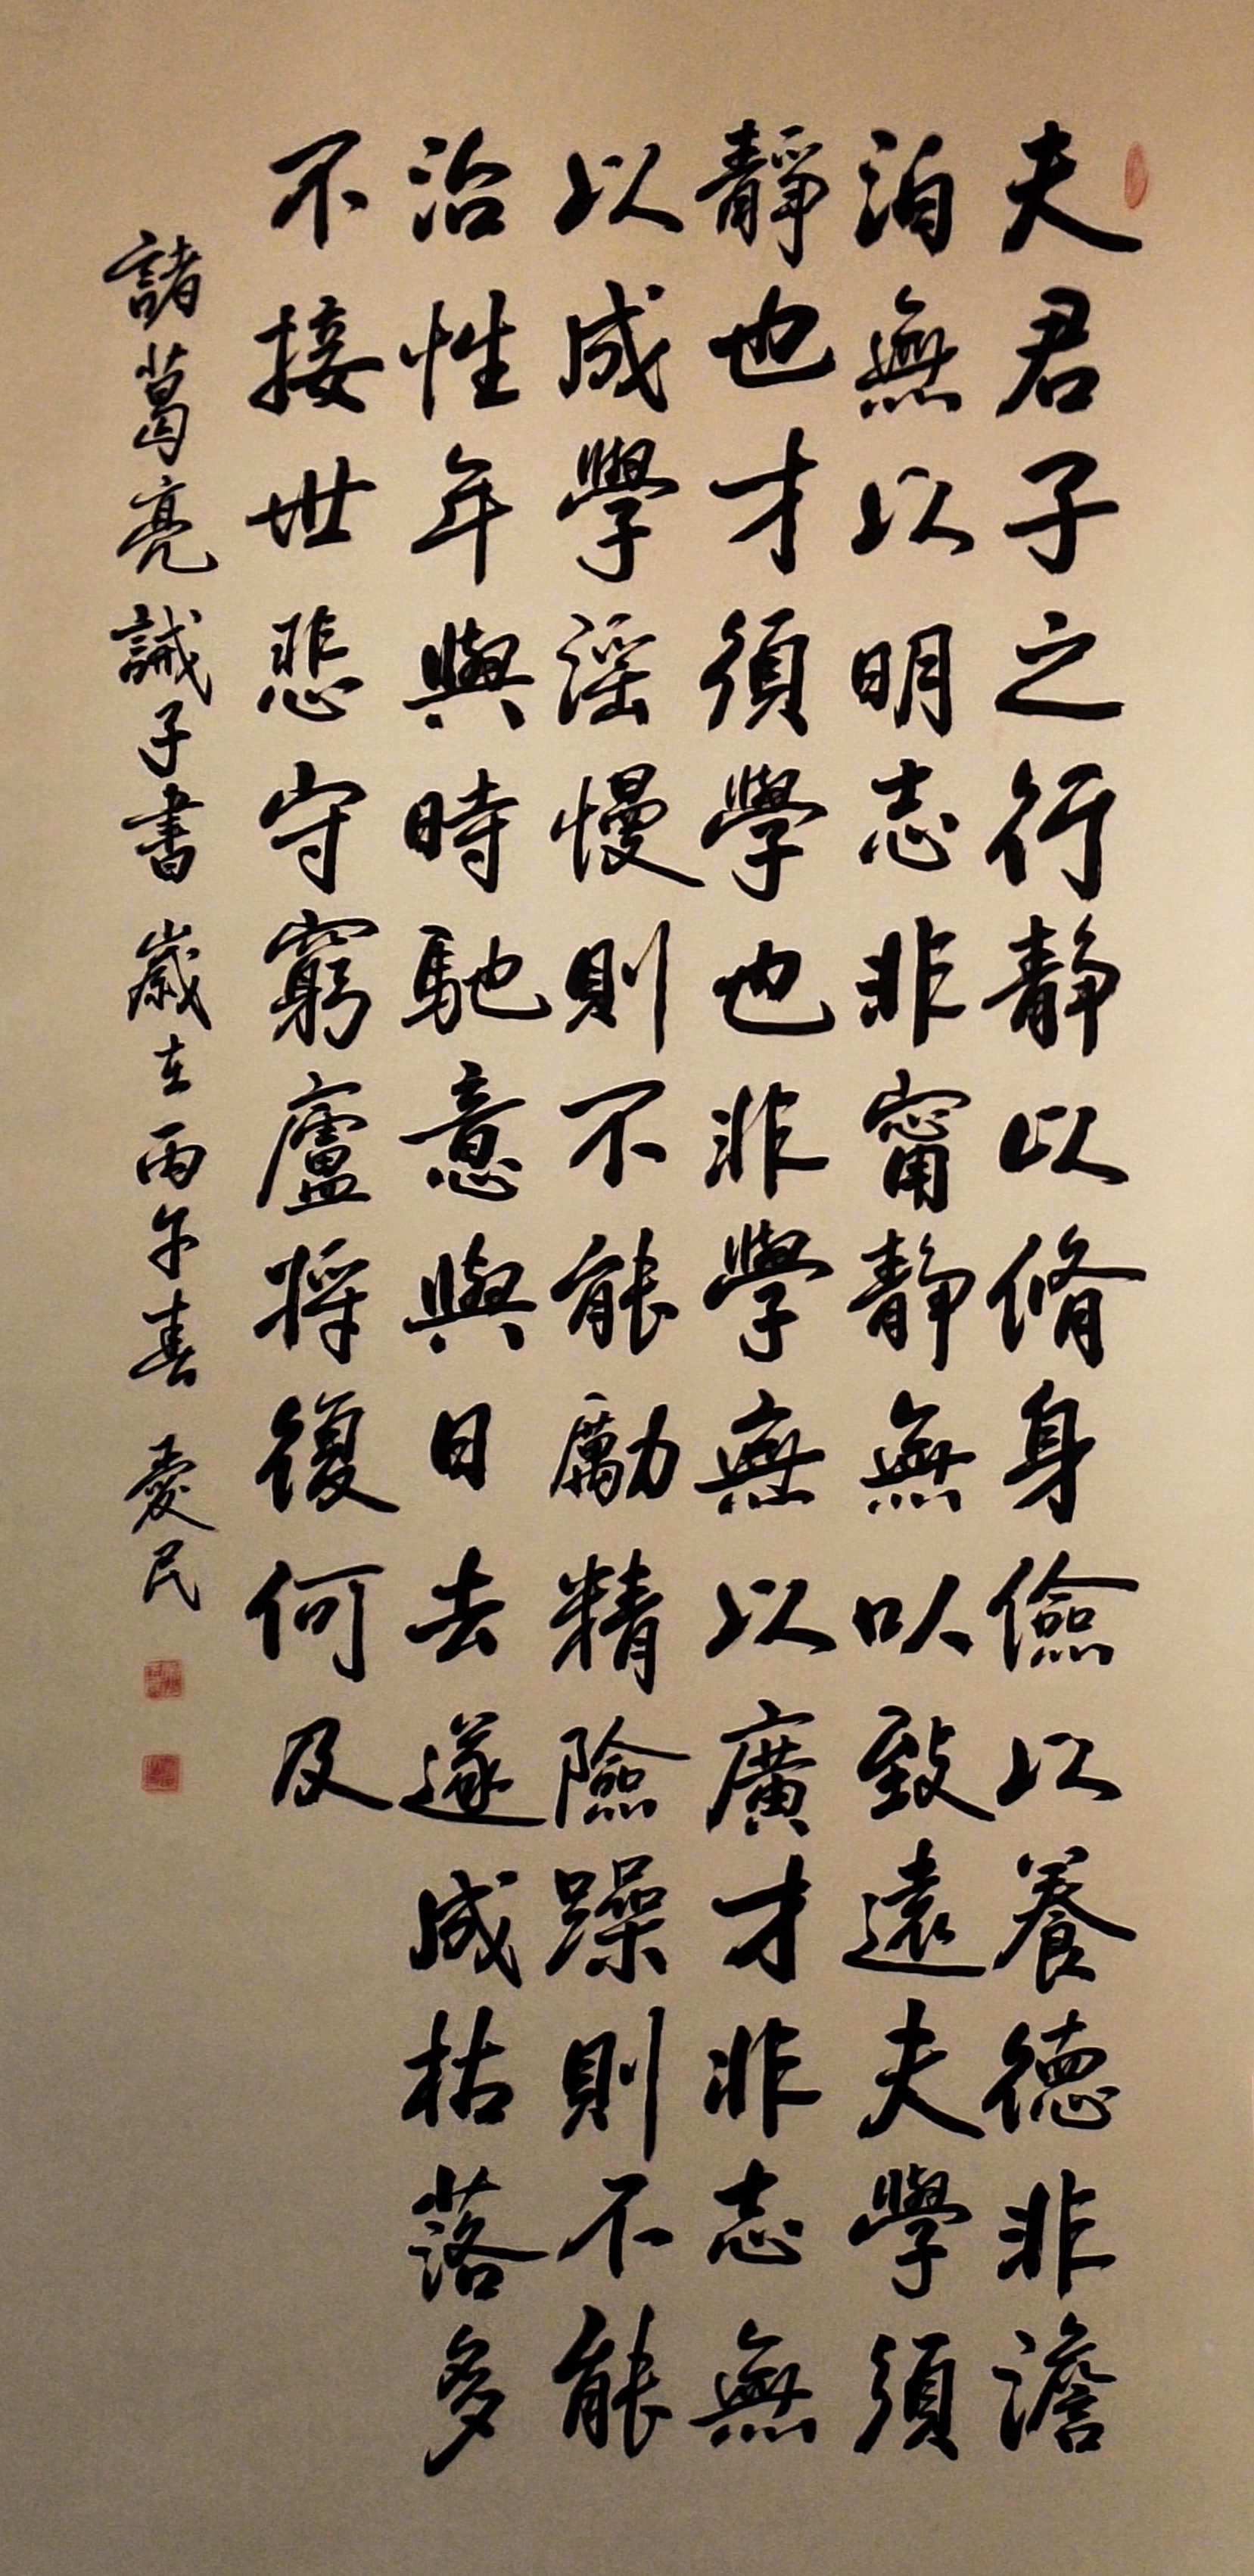 夫君子之行靜以脩身儉以養德非澹
泊無以明志非甯靜無以致遠夫學須
靜也才須學也非學無以廣才非志無
以成學滛慢則不能勵精險躁則不能
治性年與時馳意與日去遂成枯落多
不接世悲守窮廬將復何及
諸葛亮誡子書 歲在丙午春 愛民